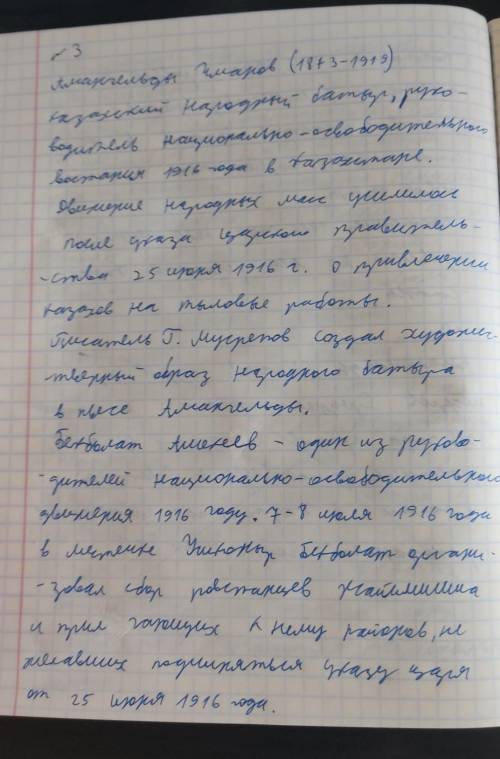 № 3
Амангельды Иманов (1873-1919)
казахский народный батыр, руко-
водитель национально-освободительного
востания 1916 года в Казахстане.
Движение народных масс усилилось
после указа царского правитель-
-ства 25 июня 1916 г. о привлечении
казахов на тыловые работы.
Писатель Г. Мусрепов создал художес-
твенный образ народного батыра
в пьесе Амангельды.
Бекболат Ашекеев - один из руково-
-дителей национально-освободительного
движения 1916 году. 7-8 июля 1916 года
в местечке Ушконыр Бекболат органи-
-зовал сбор повстанцев Жайылмыша
и прилегающих к нему районов, не
желавших подчиняться указу царя
от 25 июня 1916 года.